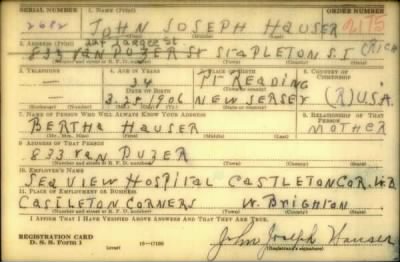 SERIAL NUMBER 1. NAME (Print) ORDER NUMBER
2682 JOHN JOSEPH HAUSER 2175
2. ADDRESS (Print) 224 TARGEE ST
833 VAN DUZER ST STAPLETON S.I (RICH
3. TELEPHONE 4. AGE IN YEARS 5. PLACE OF BIRTH 6. COUNTRY OF CITIZENSHIP
34 MT READING
DATE OF BIRTH
3.28.1906 NEW JERSEY (R)U.S.A.
7. NAME OF PERSON WHO WILL ALWAYS KNOW YOUR ADDRESS 8. RELATIONSHIP OF THAT PERSON
BERTHA HAUSER MOTHER
(Mr., Mrs., Miss) (First) (Middle) (Last)
9. ADDRESS OF THAT PERSON
833 VAN DUZER
(Number and street or R. F. D. number) (Town) (County) (State)
10. EMPLOYER'S NAME
SEA VIEW HOSPITAL CASTLETON COR.
11. PLACE OF EMPLOYMENT OR BUSINESS
CASTLETON CORNERS W. BRIGHTON
(Number and street or R. F. D. number) (Town) (County) (State)
I AFFIRM THAT I HAVE VERIFIED ABOVE ANSWERS AND THAT THEY ARE TRUE.
REGISTRATION CARD
D. S. S. Form 1 (over) John Joseph Hauser
(Registrant's signature)